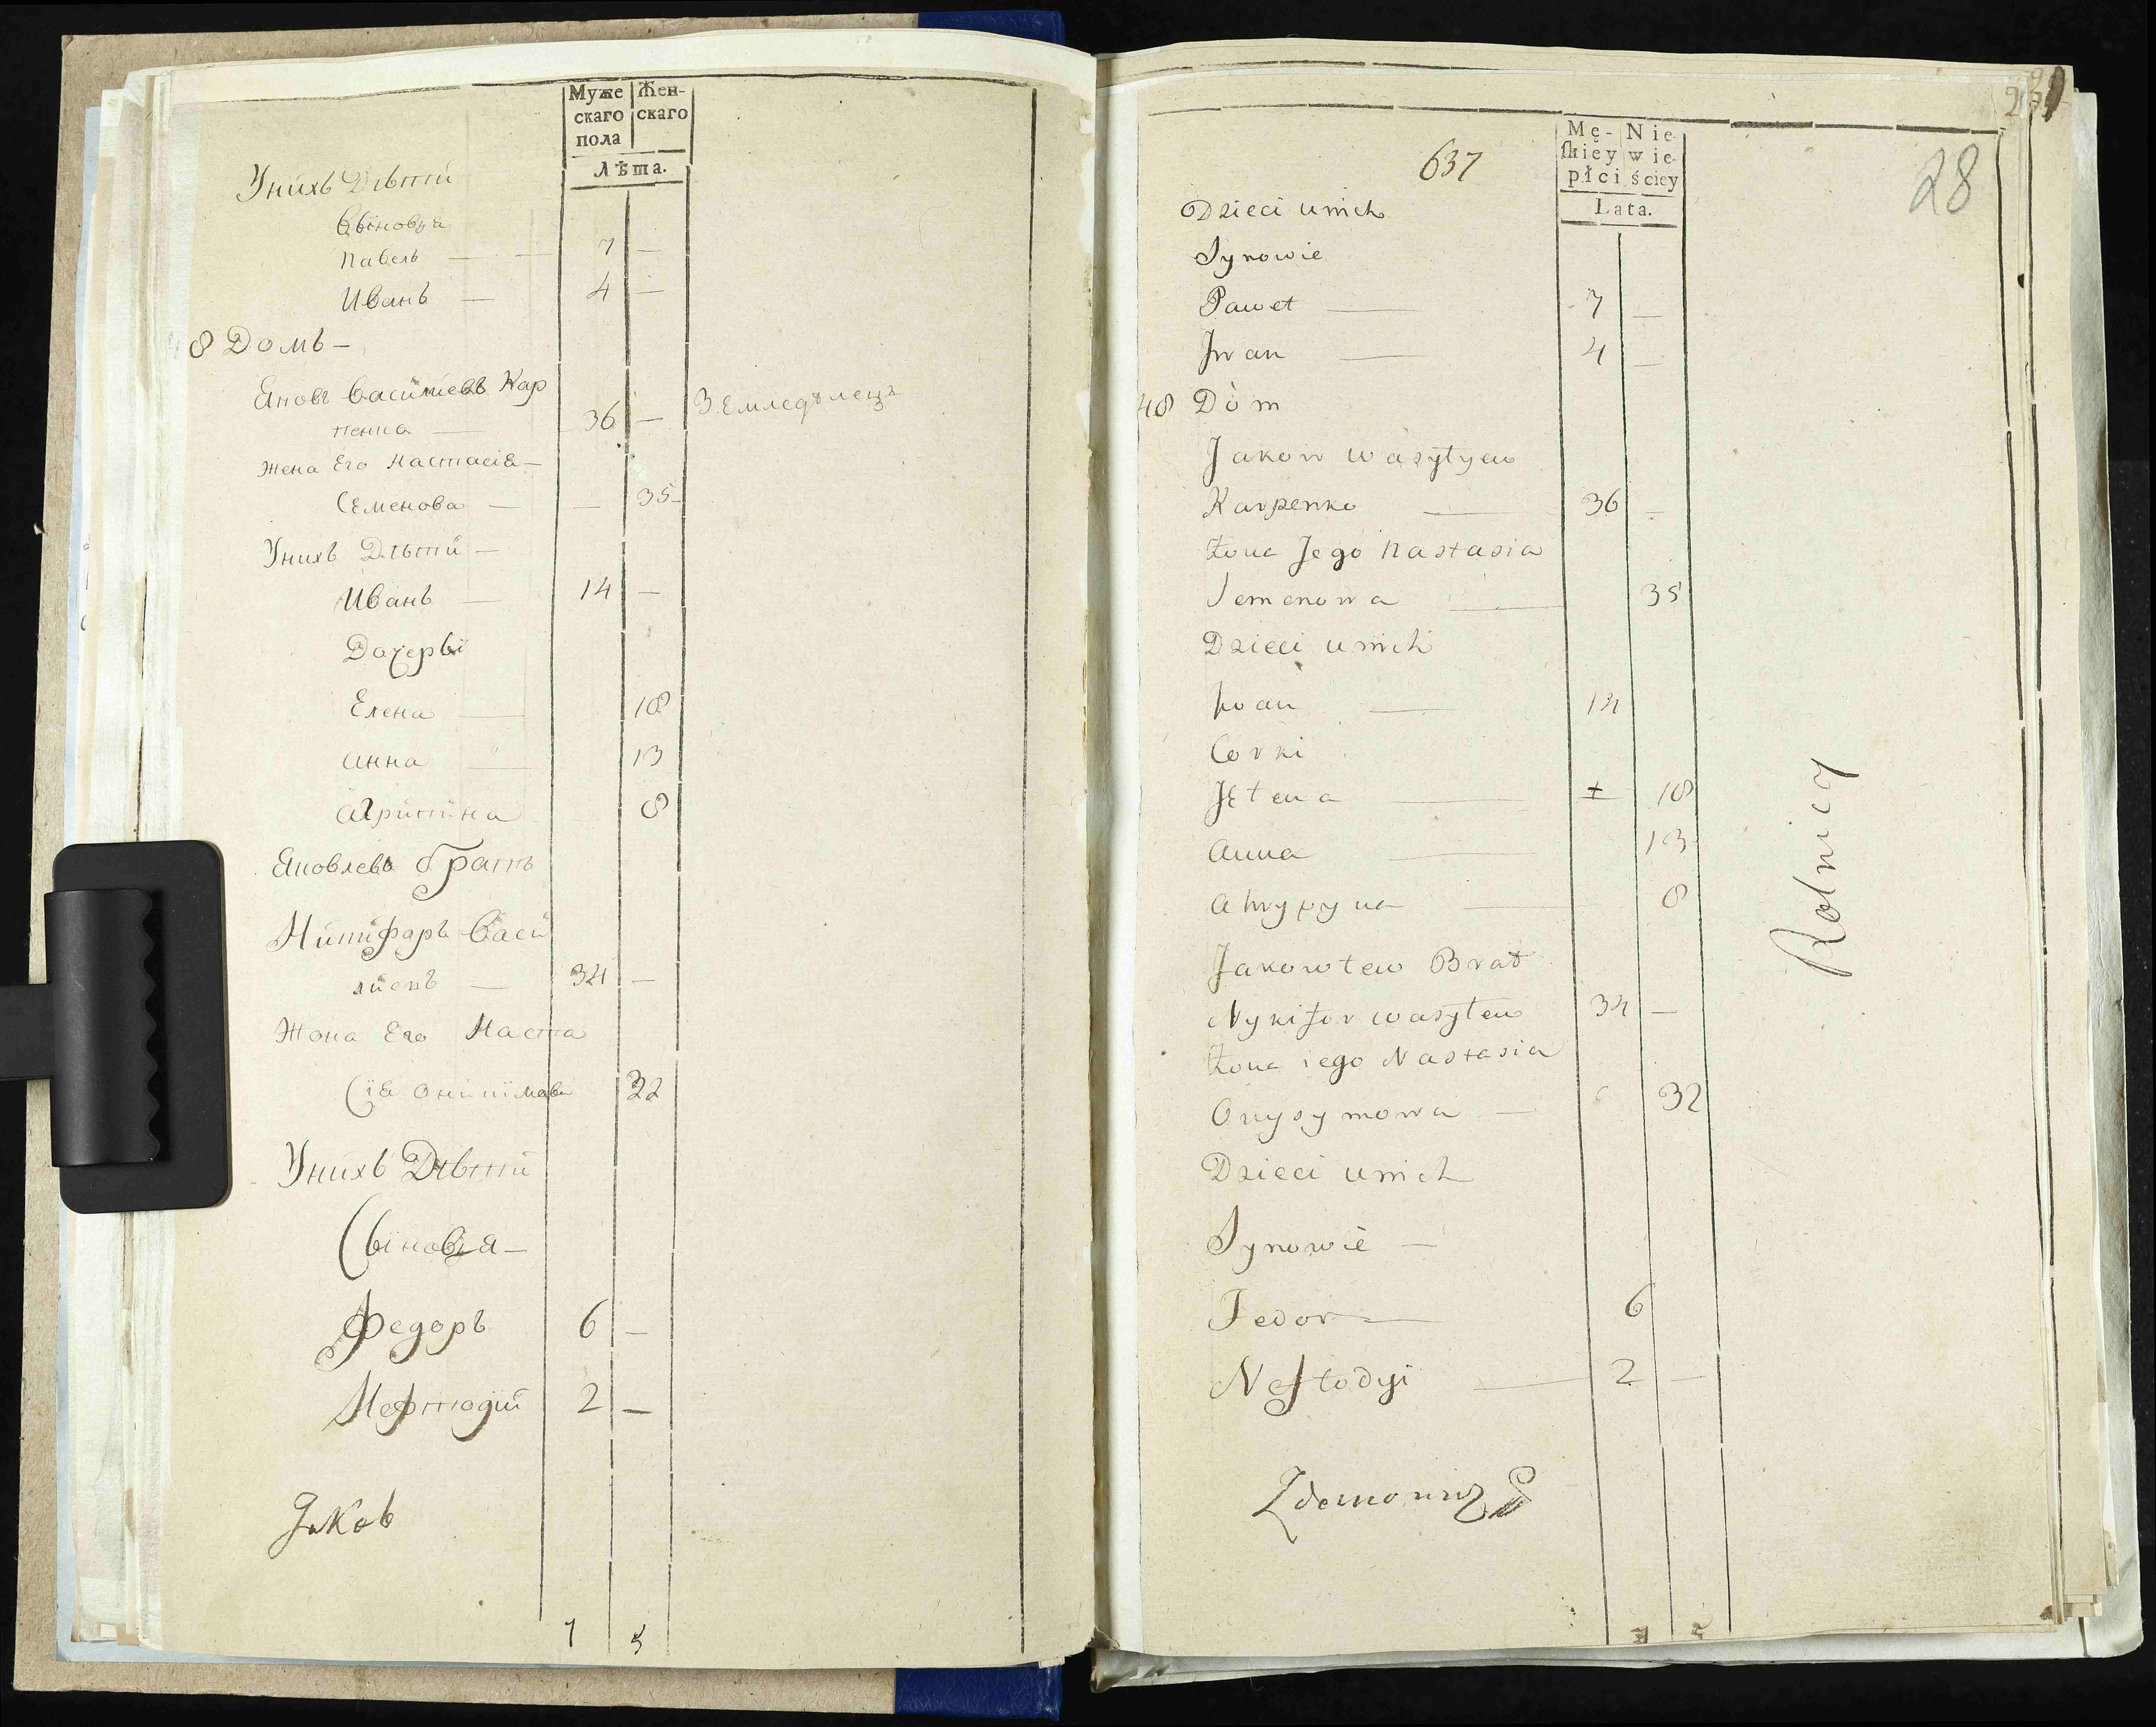 Муже
скаго
пола
Жен-
скаго
Лѣта.
Унихъ Дѣти
Сыновья
Павелъ — 7 —
Иванъ — 4 —
8 Домъ —
Яковъ Василиевъ Кар
пенка — 36 — Земледѣлецъ
Жена Его Настасіа —
Семенова — — 35
Унихъ Дѣти —
Иванъ — 14 —
Дочеры
Елена — 18
Анна — 13
Агрипина 8
Яковлевъ братъ
Никифаръ Васи
лиевъ — 34 —
Жона Его Наста
сіа 32
Унихъ Дѣти
Сыновья —
Федоръ 6 —
Мефтодий 2 —
Jаковъ
7 5
637
28
Mę-
skiey
płci
Nie-
wie-
ściey
Lata.
Dzieci unich
Synowie
Paweł — 7 —
Iwan — 4 —
48 Dòm
Jakow Wasyłyew
Karpenko — 36 —
Żona Jego Nastasia
Semenowa — 35
Dzieci unich
Iwan — 14
Corki
Jełena — 18
Anna — 13
Ahrypyna — 8
Jakowłew Brat
Nykifor Wasyłew 34 —
Żona iego Nastasia
Onysymowa — 32
Dzieci unich
Synowie —
Fedor — 6
Neftodyi — 2 —
Rolnicy